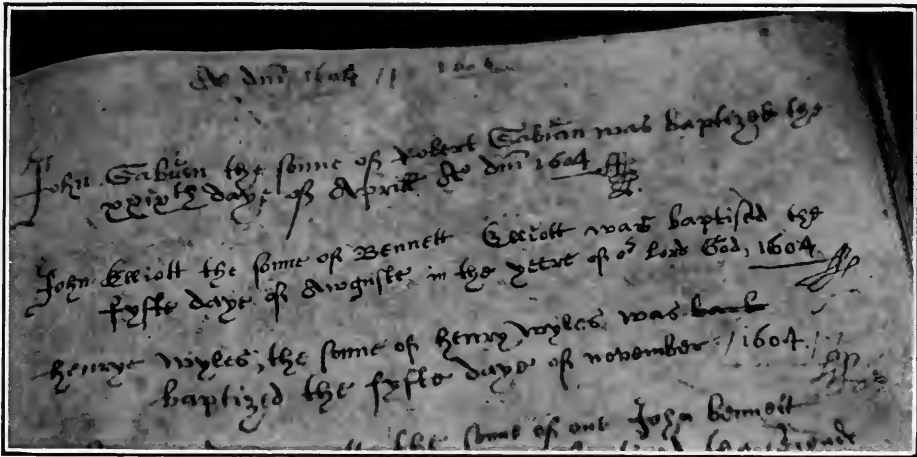 Ao dm̄ 1604 //
John the sonne of Robert was baptized the
xxixth daye of Aprill Ao dm̄ 1604
John Elliott the sonne of Bennett Elliott was baptised the
fyfte daye of Auguste in the yeere of or Lord God, 1604
Henrye Wyles, the sonne of Henry Wyles was
baptized the fyfte daye of november / 1604 /
the sonne of one John Bennett